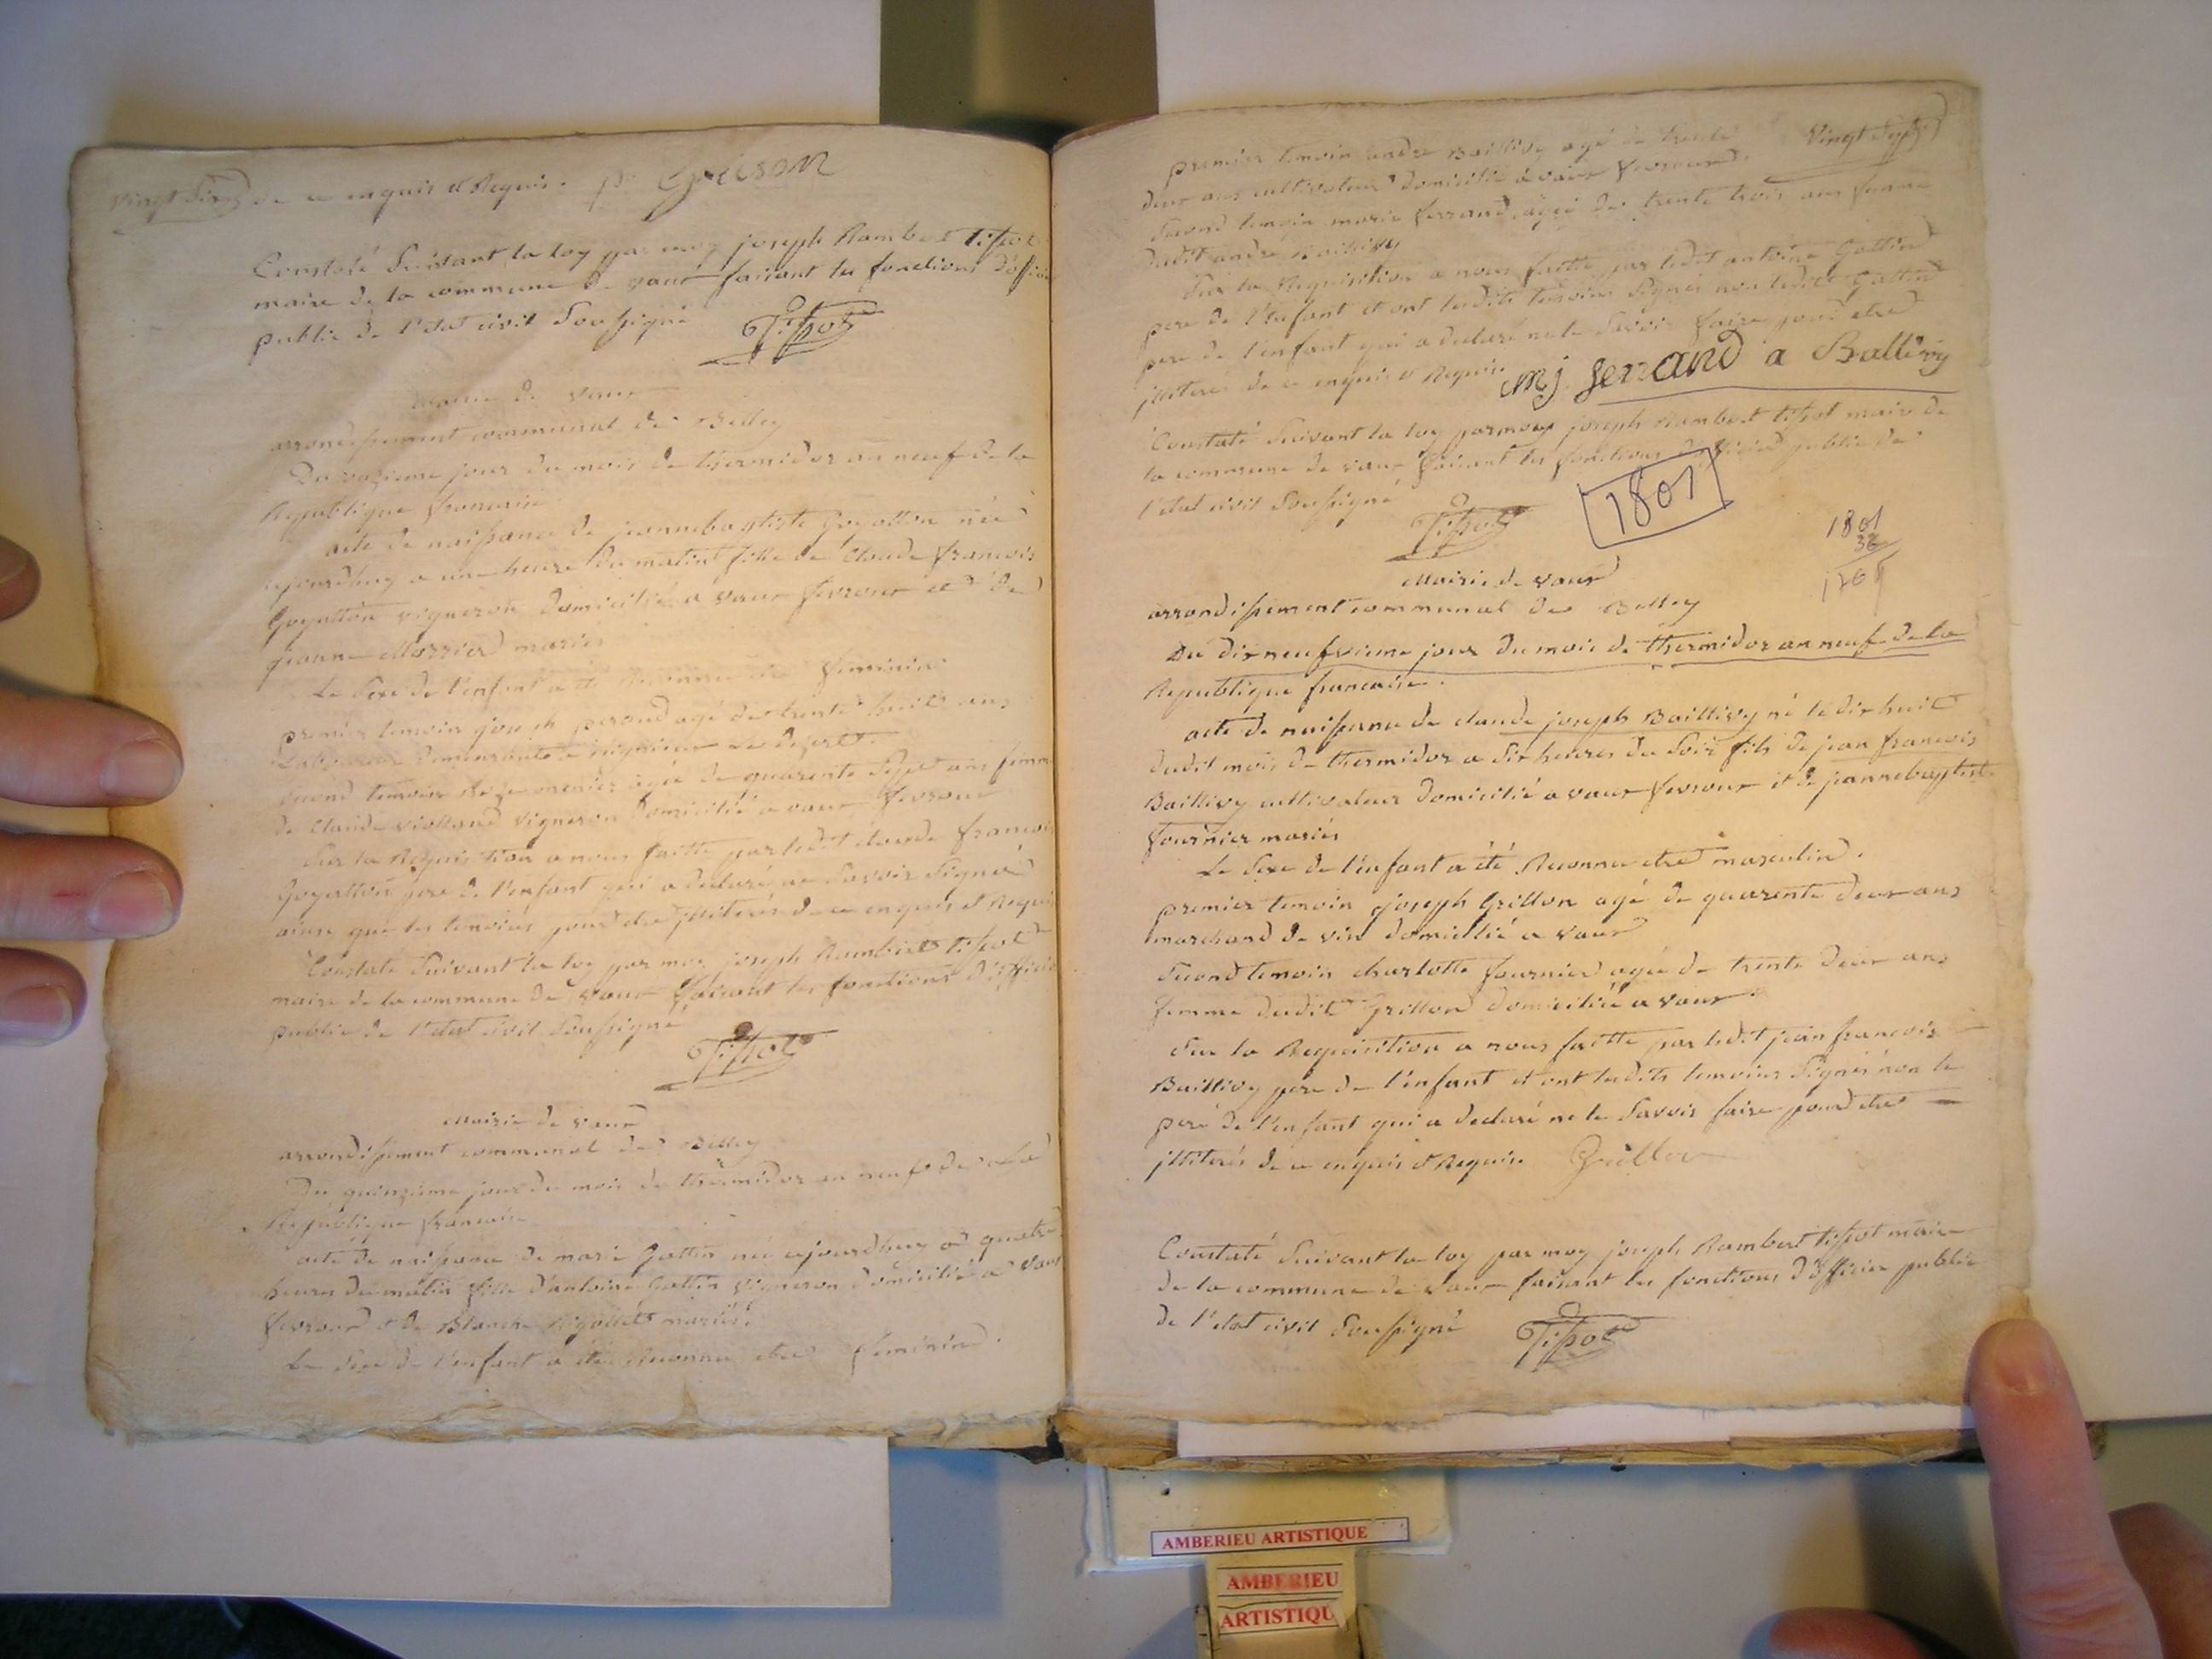 Vingt Six de ce enquis et Requis. p. Grilson
Constaté Suivant la loy par moy joseph Rambert tissot
maire de la commune de vaux faisant les fonctions d'officier
public de l'etat civil Soussigné Tissot
Mairie de vaux
arrondissement communal de Belley
Du onzieme jour du mois de thermidor an neuf de la
Republique francaise
acte de naissance de jeannebaptiste Goyatton née
aujourdhuy a une heure du matin fille de Claude francois
Goyatton vigneron domicilié a vaux fevroux et de
jeanne mariés
Le Sexe de l'enfant a été Reconnu être feminin.
premier temoin joseph perond agé de trente huit ans
Second temoin agée de quarente Sept ans femme
de Claude violland vigneron domicilié a vaux fevroux
Sur la Requisition a nous faitte par ledit claude francois
Goyatton pere de l'enfant qui a declaré ne Savoir Signer
ainsi que les temoins pour être jllitérés de ce enquis et Requis
Constaté Suivant la loy par moy joseph Rambert tissot
maire de la commune de vaux faisant les fonctions d'officier
public de l'etat civil Soussigné
Tissot
Mairie de vaux
arrondissement communal de Belley
Du quinzieme jour du mois de thermidor an neuf de la
Republique francaise
acte de naissance de marie Gottin née aujourdhuy a quatre
heures du matin fille d'antoine Gottin vigneron domicilié a vaux
fevroux et de Blanche mariés.
Le Sexe de l'enfant a été Reconnu etre feminin.
Vingt Sept
premier temoin andré Baillivy agé de trente
deux ans cultivateur domicilié a vaux fevroux
Second temoin marie ferrand agée de trente trois ans femme
dudit andré Baillivy
Sur la Requisition a nous faitte par ledit antoine Gottin
pere de l'enfant et ont lesdits temoins Signés non ledit Gottin
pere de l'enfant qui a declaré ne le Savoir faire pour etre
jlliteré de ce enquis et Requis. mj ferrand a Ballivy
Constaté Suivant la loy par moy joseph Rambert tissot maire de
la commune de vaux faisant les fonctions d'officier public de
l'etat civil Soussigné
Tissot
1801
1801
36
Mairie de vaux
arrondissement communal de Belley
Du dix neufvieme jour du mois de thermidor an neuf de la
Republique francaise.
acte de naissance de claude joseph Baillivy né le dix huit
dudit mois de thermidor a six heures du Soir fils de jean francois
Baillivy cultivateur domicilié a vaux fevroux et de jeannebaptiste
fournier mariés
Le Sexe de l'enfant a été Reconnu etre masculin.
premier temoin joseph Grillon agé de quarente deux ans
marchand de vin domicilié a vaux
Second temoin charlotte fournier agée de trente deux ans
femme dudit Grillon domiciliée a vaux.
Sur la Requisition a nous faitte par ledit jean francois
Baillivy pere de l'enfant et ont lesdits temoins Signés non le
pere de l'enfant qui a declaré ne le Savoir faire pour etre
jlliterés de ce enquis et Requis. Grillon
Constaté Suivant la loy par moy joseph Rambert tissot maire
de la commune de vaux faisant les fonctions d'officier public
de l'etat civil Soussigné Tissot
AMBERIEU ARTISTIQUE
AMBERIEU
ARTISTIQU